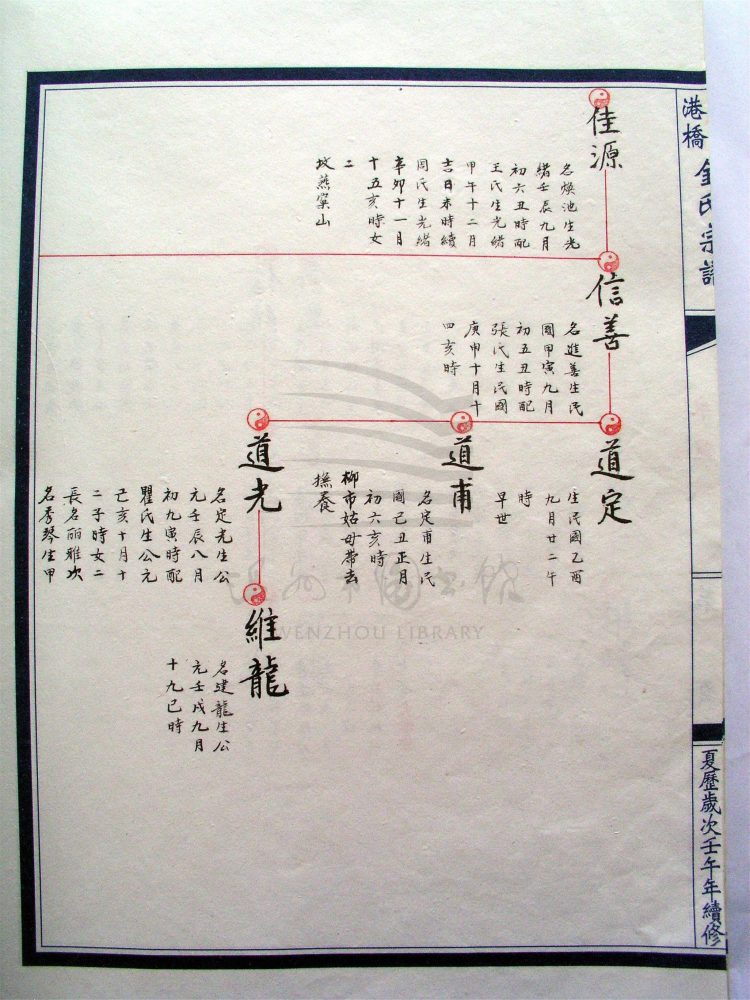 港橋 金氏宗譜
夏歷歲次壬午年續修
佳源
名煥池生光
緒壬辰九月
初六丑時配
王氏生光緒
甲午十二月
吉日未時續
周氏生光緒
辛卯十一月
十五亥時女
二
坟燕窠山
信善
名進善生民
國甲寅九月
初五丑時配
張氏生民國
庚申十月十
四亥時
道定
生民國乙酉
九月廿二午
時
早世
道甫
名定甫生民
國己丑正月
初六亥時
柳市姑母帶去
撫養
道光
名定光生公
元壬辰八月
初九寅時配
瞿氏生公元
己亥十月十
二子時女二
長名丽雅次
名秀琴生甲
維龍
名建龍生公
元壬戌九月
十九巳時
溫州市圖書館
WENZHOU LIBRARY